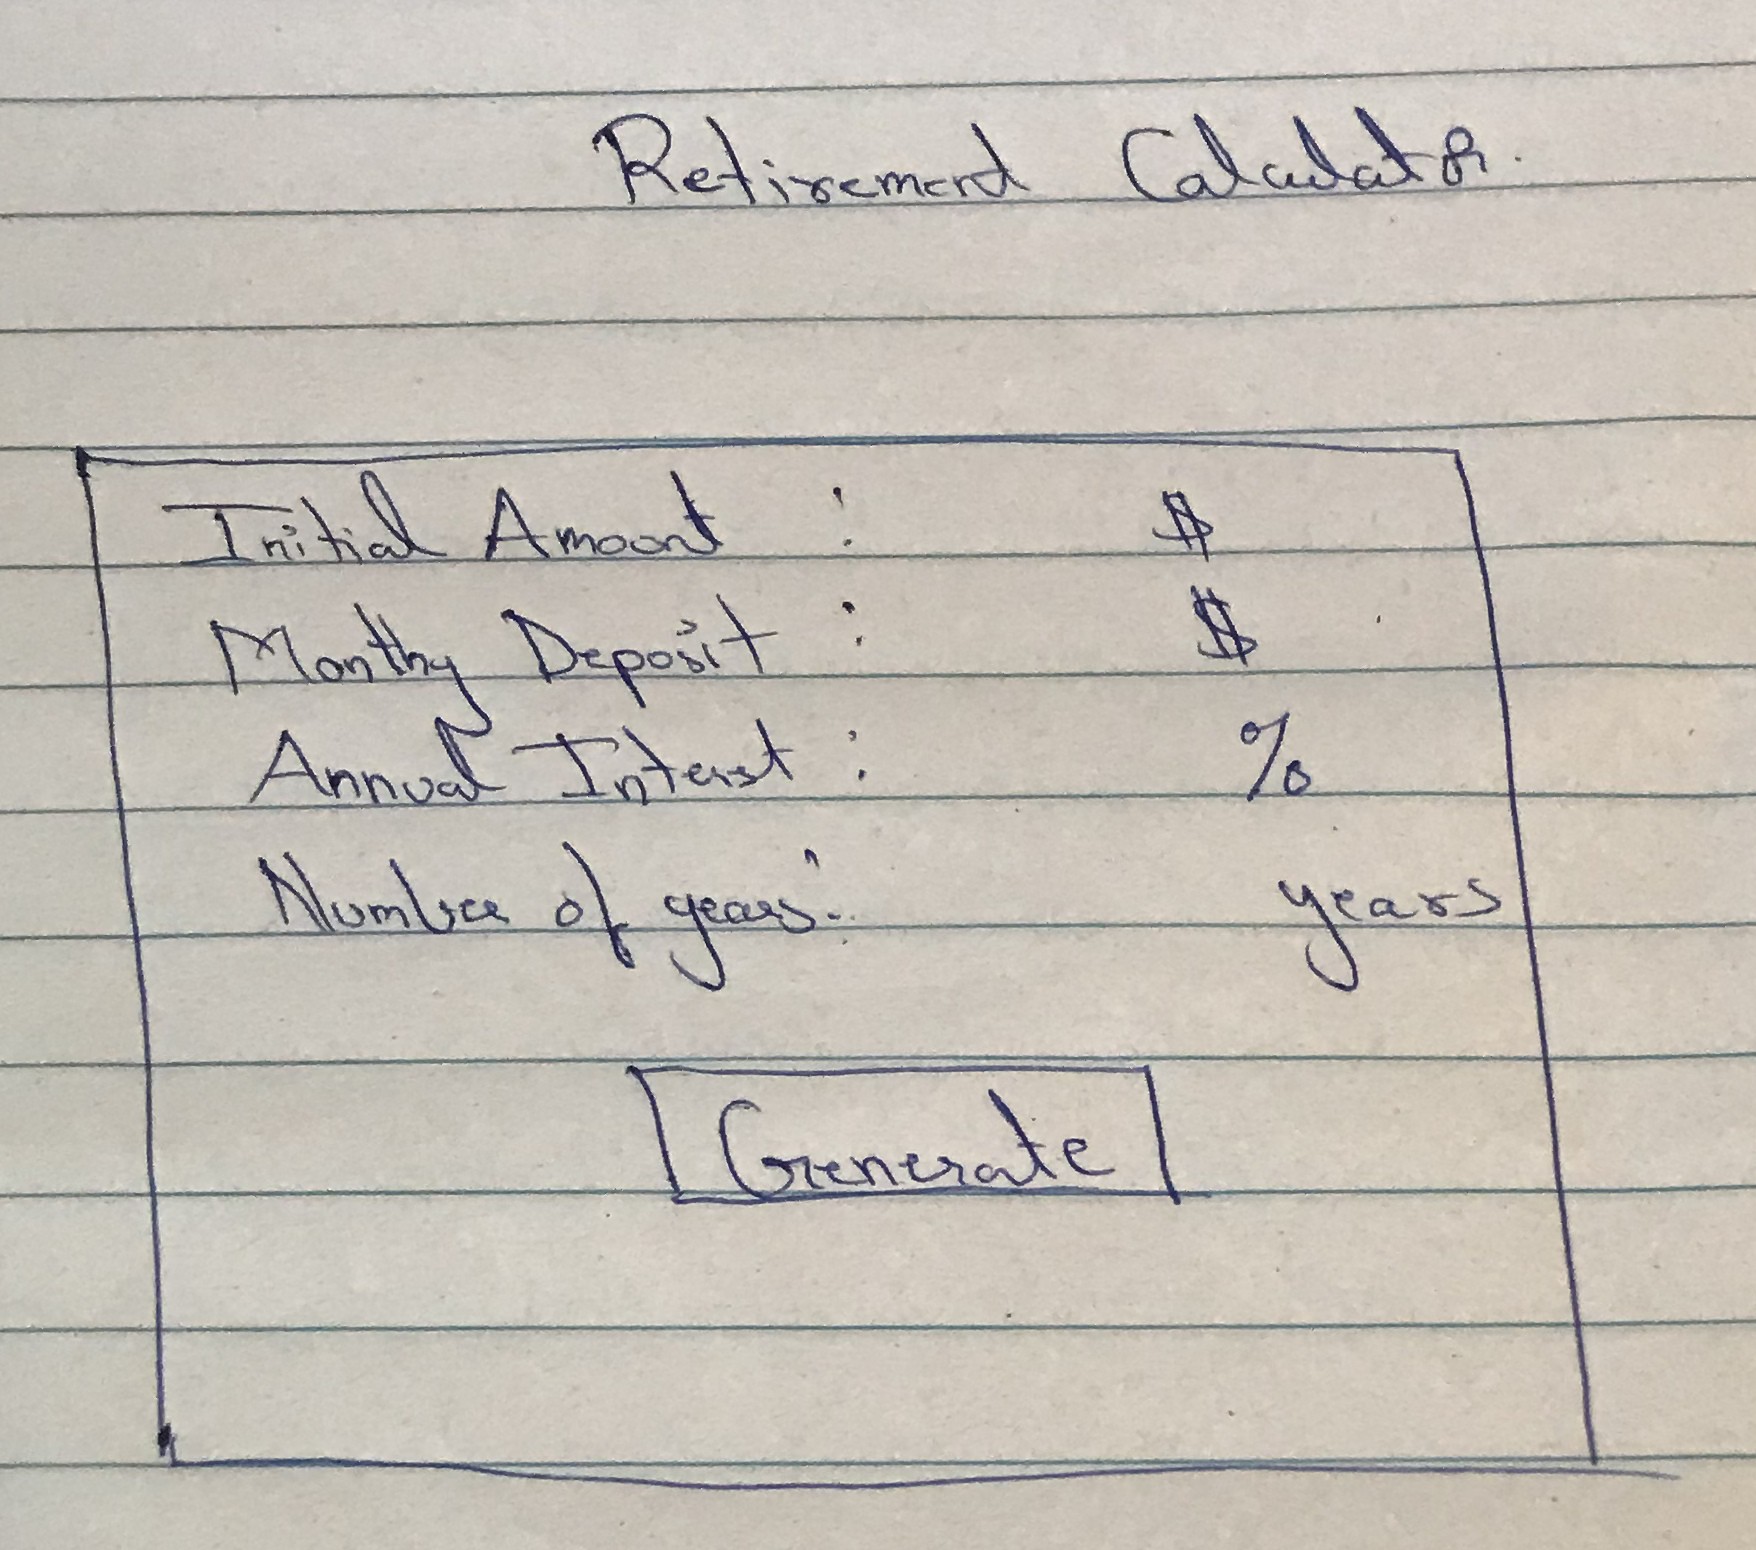 Retirement Calculator.
Initial Amount : $
Monthy Deposit : $
Annual Interst : %
Number of years: years
Generate